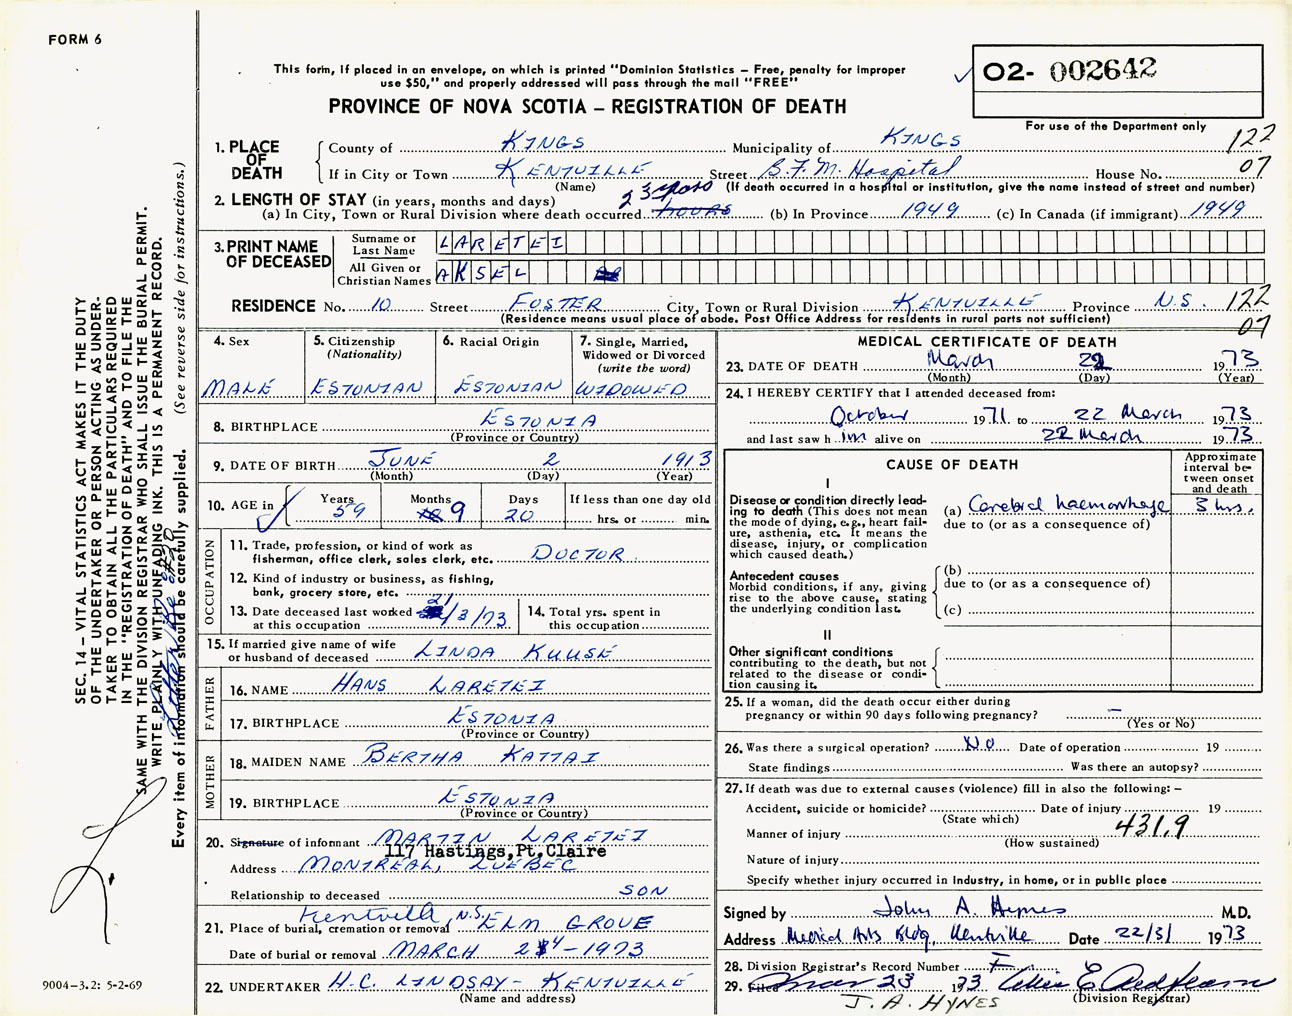 FORM 6
This form, if placed in an envelope, on which is printed "Dominion Statistics – Free, penalty for improper
use $50," and properly addressed will pass through the mail "FREE"
PROVINCE OF NOVA SCOTIA – REGISTRATION OF DEATH
02- 002642
For use of the Department only
122
07
1. PLACE OF DEATH
County of KINGS Municipality of KINGS
If in City or Town KENTVILLE Street B.F.M. Hospital House No.
(Name) (If death occurred in a hospital or institution, give the name instead of street and number)
2. LENGTH OF STAY (in years, months and days)
(a) In City, Town or Rural Division where death occurred 23 years hours (b) In Province 1949 (c) In Canada (if immigrant) 1949
3. PRINT NAME OF DECEASED
Surname or Last Name LARETEI
All Given or Christian Names AKSEL
RESIDENCE No. 10 Street FOSTER City, Town or Rural Division KENTVILLE Province N.S. 122
(Residence means usual place of abode. Post Office Address for residents in rural parts not sufficient) 07
4. Sex MALE
5. Citizenship (Nationality) ESTONIAN
6. Racial Origin ESTONIAN
7. Single, Married, Widowed or Divorced (write the word) WIDOWED
8. BIRTHPLACE ESTONIA
(Province or Country)
9. DATE OF BIRTH JUNE 2 1913
(Month) (Day) (Year)
10. AGE in Years 59 Months 9 Days 20 If less than one day old
hrs. or min.
OCCUPATION
11. Trade, profession, or kind of work as
fisherman, office clerk, sales clerk, etc. DOCTOR
12. Kind of industry or business, as fishing,
bank, grocery store, etc.
13. Date deceased last worked
at this occupation 21/3/73
14. Total yrs. spent in
this occupation
15. If married give name of wife
or husband of deceased LINDA KUUSE
FATHER
16. NAME HANS LARETEI
17. BIRTHPLACE ESTONIA
(Province or Country)
MOTHER
18. MAIDEN NAME BERTHA KATTAI
19. BIRTHPLACE ESTONIA
(Province or Country)
20. Signature of informant MARTIN LARETEI
117 Hastings, Pt. Claire
Address MONTREAL, QUEBEC
Relationship to deceased SON
21. Place of burial, cremation or removal Kentville, N.S. ELM GROVE
Date of burial or removal MARCH 24-1973
22. UNDERTAKER H.C. LINDSAY - KENTVILLE
(Name and address)
MEDICAL CERTIFICATE OF DEATH
23. DATE OF DEATH March 22 1973
(Month) (Day) (Year)
24. I HEREBY CERTIFY that I attended deceased from:
October 1971 to 22 March 1973
and last saw him alive on 22 March 1973
CAUSE OF DEATH
Approximate interval between onset and death
I
Disease or condition directly lead-
ing to death (This does not mean
the mode of dying, e.g., heart fail-
ure, asthenia, etc. It means the
disease, injury, or complication
which caused death.)
(a) Cerebral haemorrhage 3 hrs.
due to (or as a consequence of)
Antecedent causes
Morbid conditions, if any, giving
rise to the above cause, stating
the underlying condition last.
(b)
due to (or as a consequence of)
(c)
II
Other significant conditions
contributing to the death, but not
related to the disease or condi-
tion causing it.
25. If a woman, did the death occur either during
pregnancy or within 90 days following pregnancy? –
(Yes or No)
26. Was there a surgical operation? No Date of operation 19
State findings Was there an autopsy?
27. If death was due to external causes (violence) fill in also the following: –
Accident, suicide or homicide? Date of injury 19
(State which)
Manner of injury 431.9
(How sustained)
Nature of injury
Specify whether injury occurred in industry, in home, or in public place
Signed by John A. Hynes M.D.
Address Medical Arts Bldg, Kentville Date 22/3/ 1973
28. Division Registrar's Record Number
29. Filed Mar 23 1973
(Division Registrar)
J. A. HYNES
SEC. 14 – VITAL STATISTICS ACT MAKES IT THE DUTY
OF THE UNDERTAKER OR PERSON ACTING AS UNDER-
TAKER TO OBTAIN ALL THE PARTICULARS REQUIRED
IN THE "REGISTRATION OF DEATH" AND TO FILE THE
SAME WITH THE DIVISION REGISTRAR WHO SHALL ISSUE THE BURIAL PERMIT.
WRITE PLAINLY WITH UNFADING INK. THIS IS A PERMANENT RECORD.
Every item of information should be carefully supplied. (See reverse side for instructions.)
9004–3.2: 5-2-69